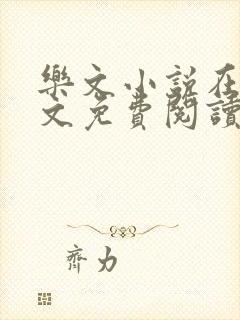 樂文小說在
文免費閱讀
齊力